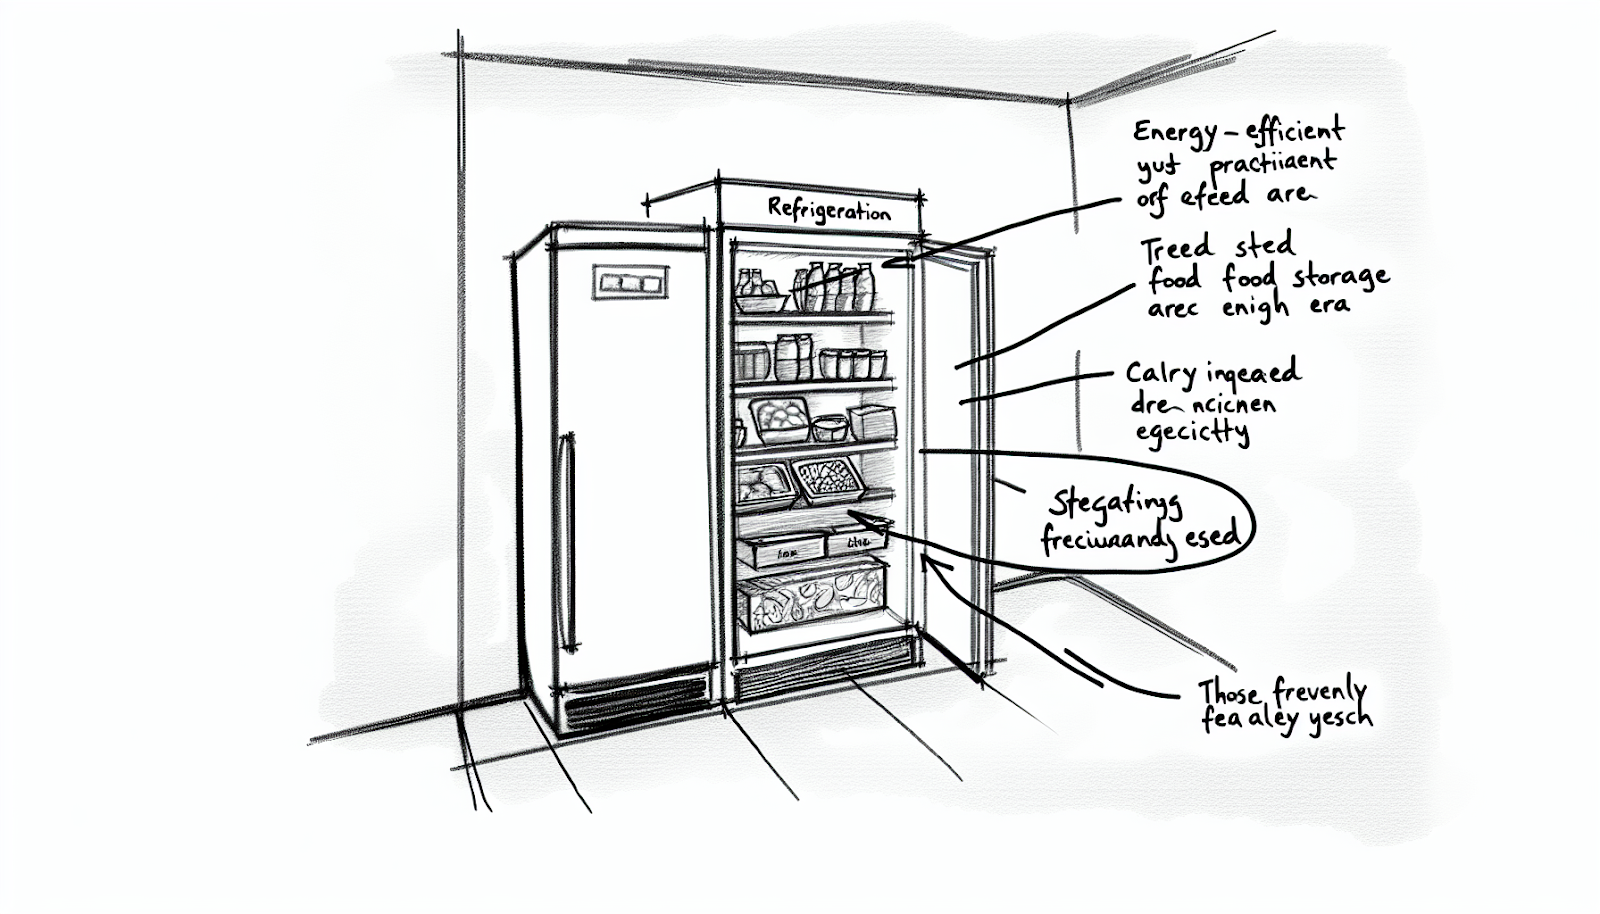 Refrigeration
Energy-efficient
yut practiiaent
orf efeed are
Treed sted
food food storage
arec enigh era
Calry inqeaed
dre ncicnen
egecictty
Stegatingg
freciwaandy esed
Those frevenly
fea aley yesch